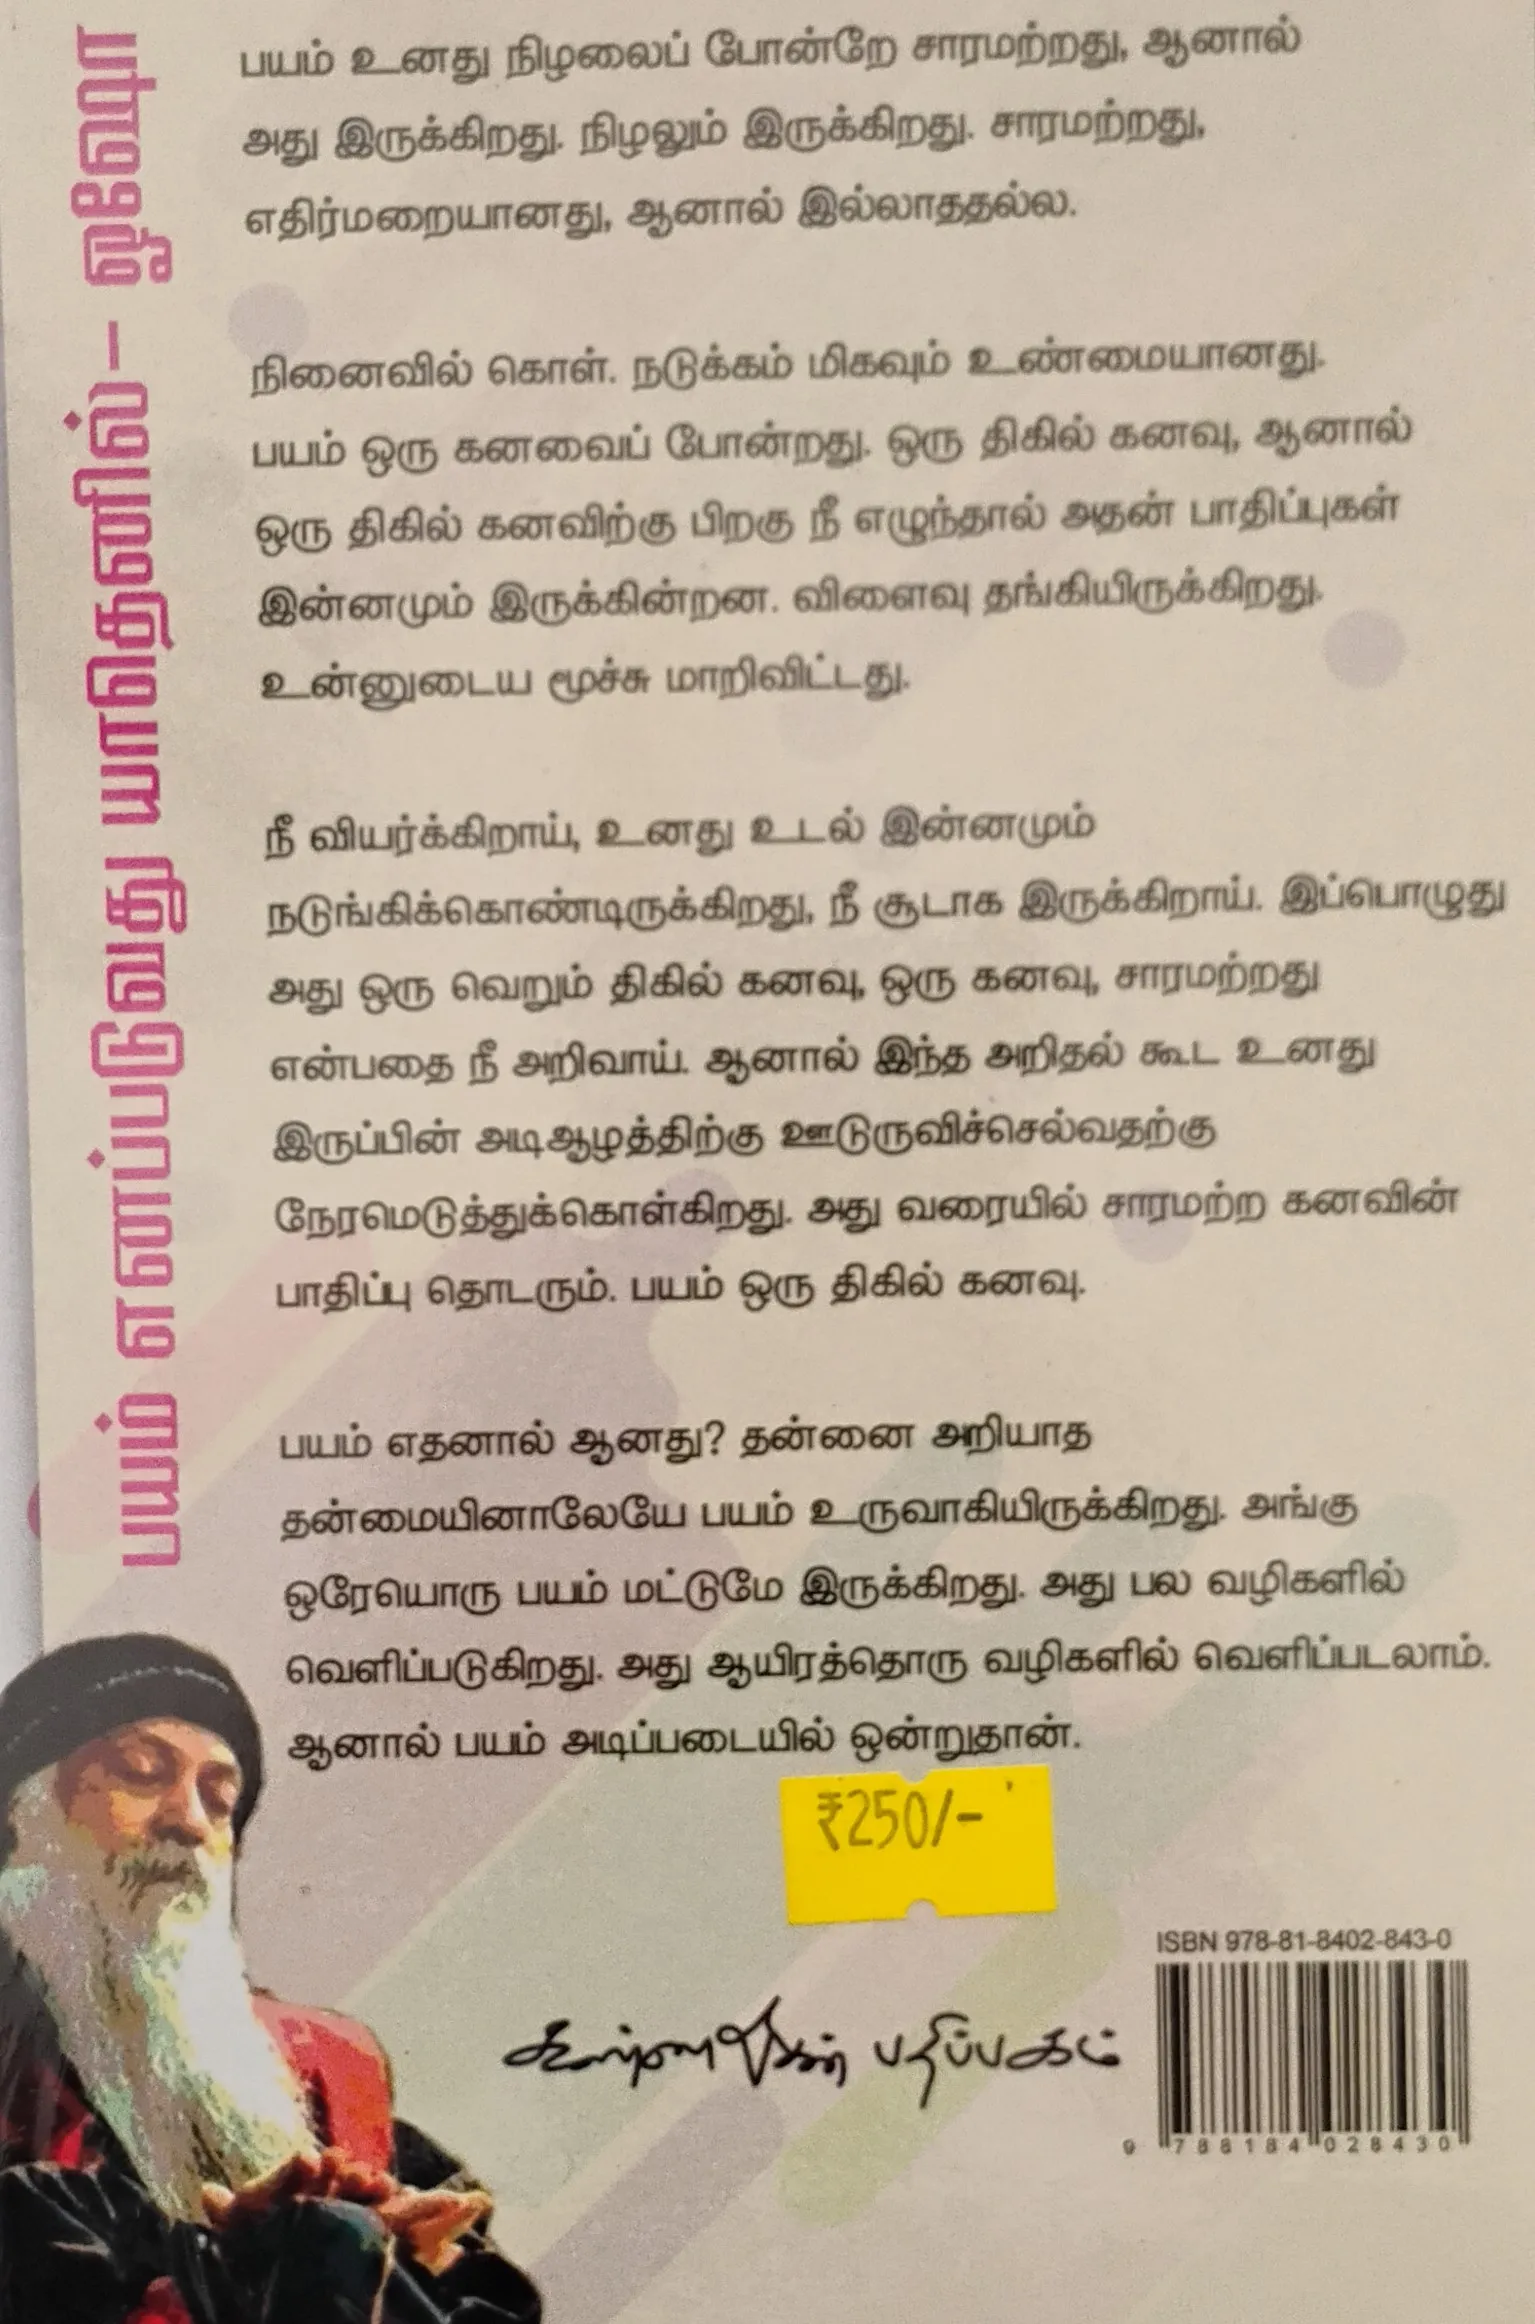 பயம் எனப்படுவது யாதெனில் – ஓஷோ
பயம் உனது நிழலைப் போன்றே சாரமற்றது, ஆனால்
அது இருக்கிறது. நிழலும் இருக்கிறது. சாரமற்றது,
எதிர்மறையானது, ஆனால் இல்லாததல்ல.
நினைவில் கொள். நடுக்கம் மிகவும் உண்மையானது.
பயம் ஒரு கனவைப் போன்றது. ஒரு திகில் கனவு, ஆனால்
ஒரு திகில் கனவிற்கு பிறகு நீ எழுந்தால் அதன் பாதிப்புகள்
இன்னமும் இருக்கின்றன. விளைவு தங்கியிருக்கிறது.
உன்னுடைய மூச்சு மாறிவிட்டது.
நீ வியர்க்கிறாய், உனது உடல் இன்னமும்
நடுங்கிக்கொண்டிருக்கிறது, நீ சூடாக இருக்கிறாய். இப்பொழுது
அது ஒரு வெறும் திகில் கனவு, ஒரு கனவு, சாரமற்றது
என்பதை நீ அறிவாய். ஆனால் இந்த அறிதல் கூட உனது
இருப்பின் அடிஆழத்திற்கு ஊடுருவிச்செல்வதற்கு
நேரமெடுத்துக்கொள்கிறது. அது வரையில் சாரமற்ற கனவின்
பாதிப்பு தொடரும். பயம் ஒரு திகில் கனவு.
பயம் எதனால் ஆனது? தன்னை அறியாத
தன்மையினாலேயே பயம் உருவாகியிருக்கிறது. அங்கு
ஒரேயொரு பயம் மட்டுமே இருக்கிறது. அது பல வழிகளில்
வெளிப்படுகிறது. அது ஆயிரத்தொரு வழிகளில் வெளிப்படலாம்.
ஆனால் பயம் அடிப்படையில் ஒன்றுதான்.
₹250/-
ISBN 978-81-8402-843-0
கண்ணதாசன் பதிப்பகம்
9 788184 028430